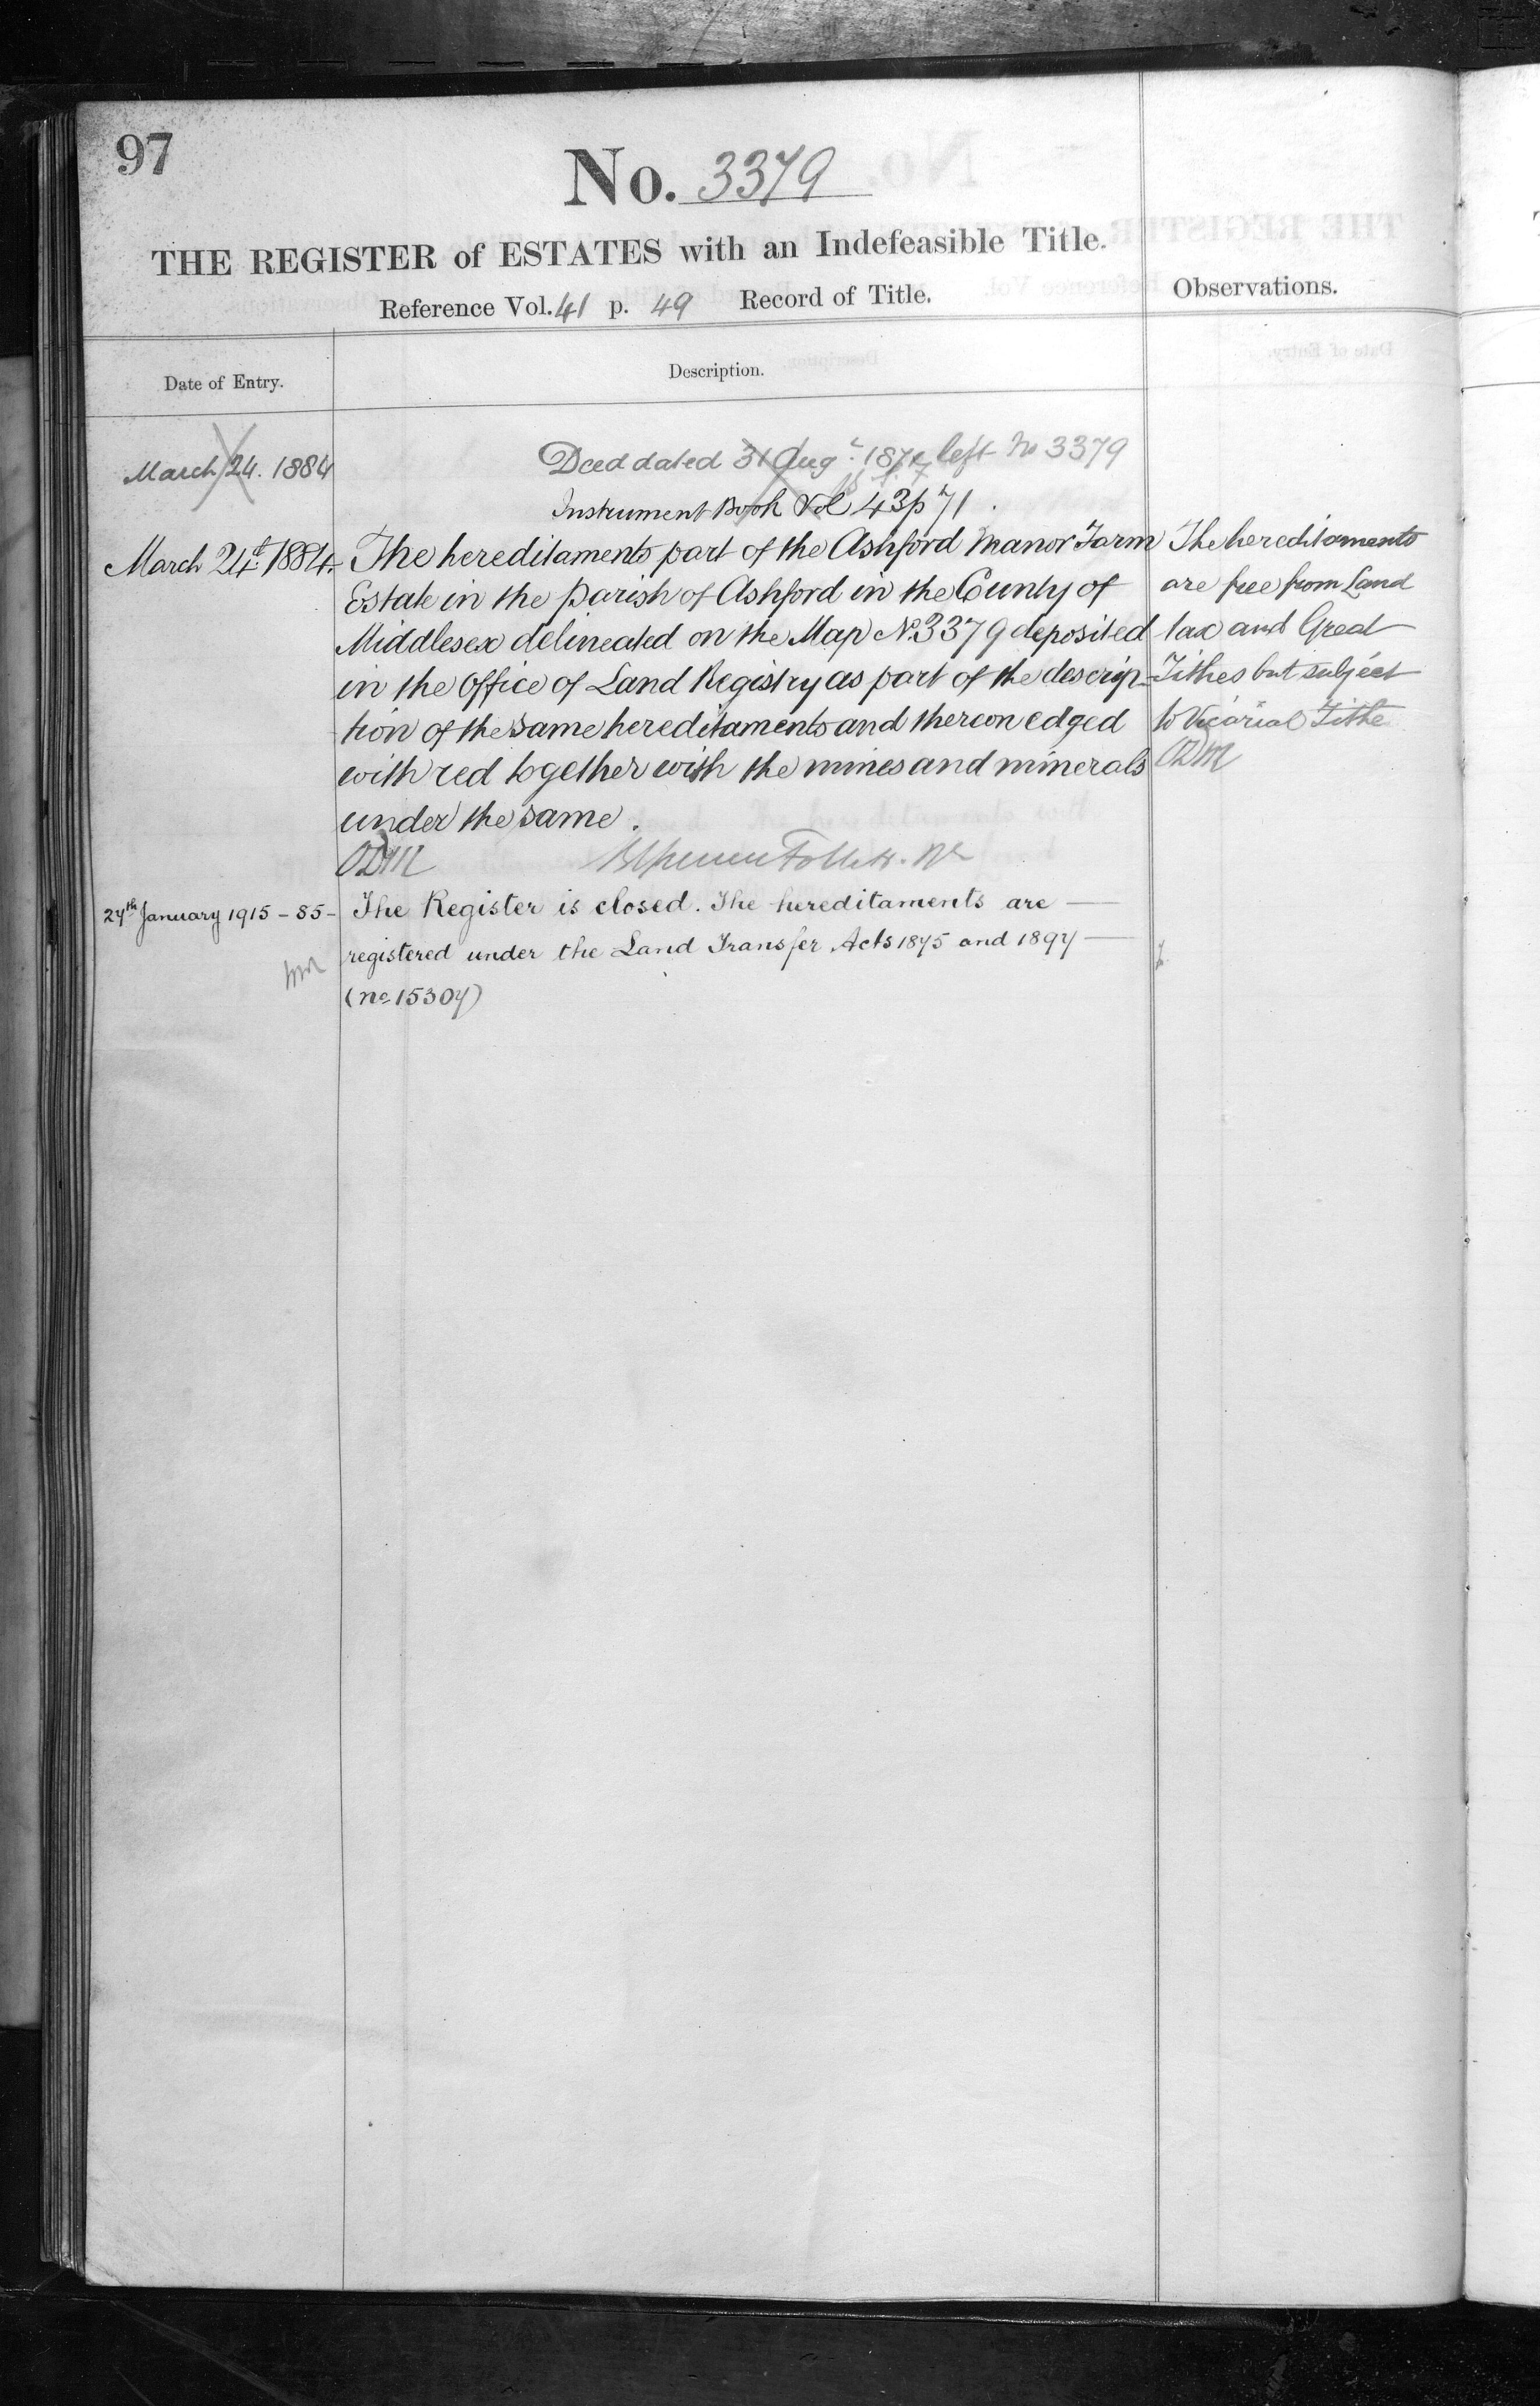 97
No. 3379
THE REGISTER of ESTATES with an Indefeasible Title.
Reference Vol. 41 p. 49 Record of Title.
Observations.
Date of Entry.
Description.
March 24. 1884
Deed dated 31 Aug 187 left No 3379
Instrument Book Vol 43 p 71.
March 24th 1884.
The hereditaments part of the Ashford Manor Farm
Estate in the Parish of Ashford in the County of
Middlesex delineated on the Map No. 3379 deposited
in the Office of Land Registry as part of the descrip-
tion of the same hereditaments and thereon edged
with red together with the mines and minerals
under the same.
The hereditaments
are free from Land
tax and Great
Tithes but subject
to Vicarial Tithe
ODM
ODM
27th January 1915 - 85 -
The Register is closed. The hereditaments are
registered under the Land Transfer Acts 1875 and 1897
(no 15307)